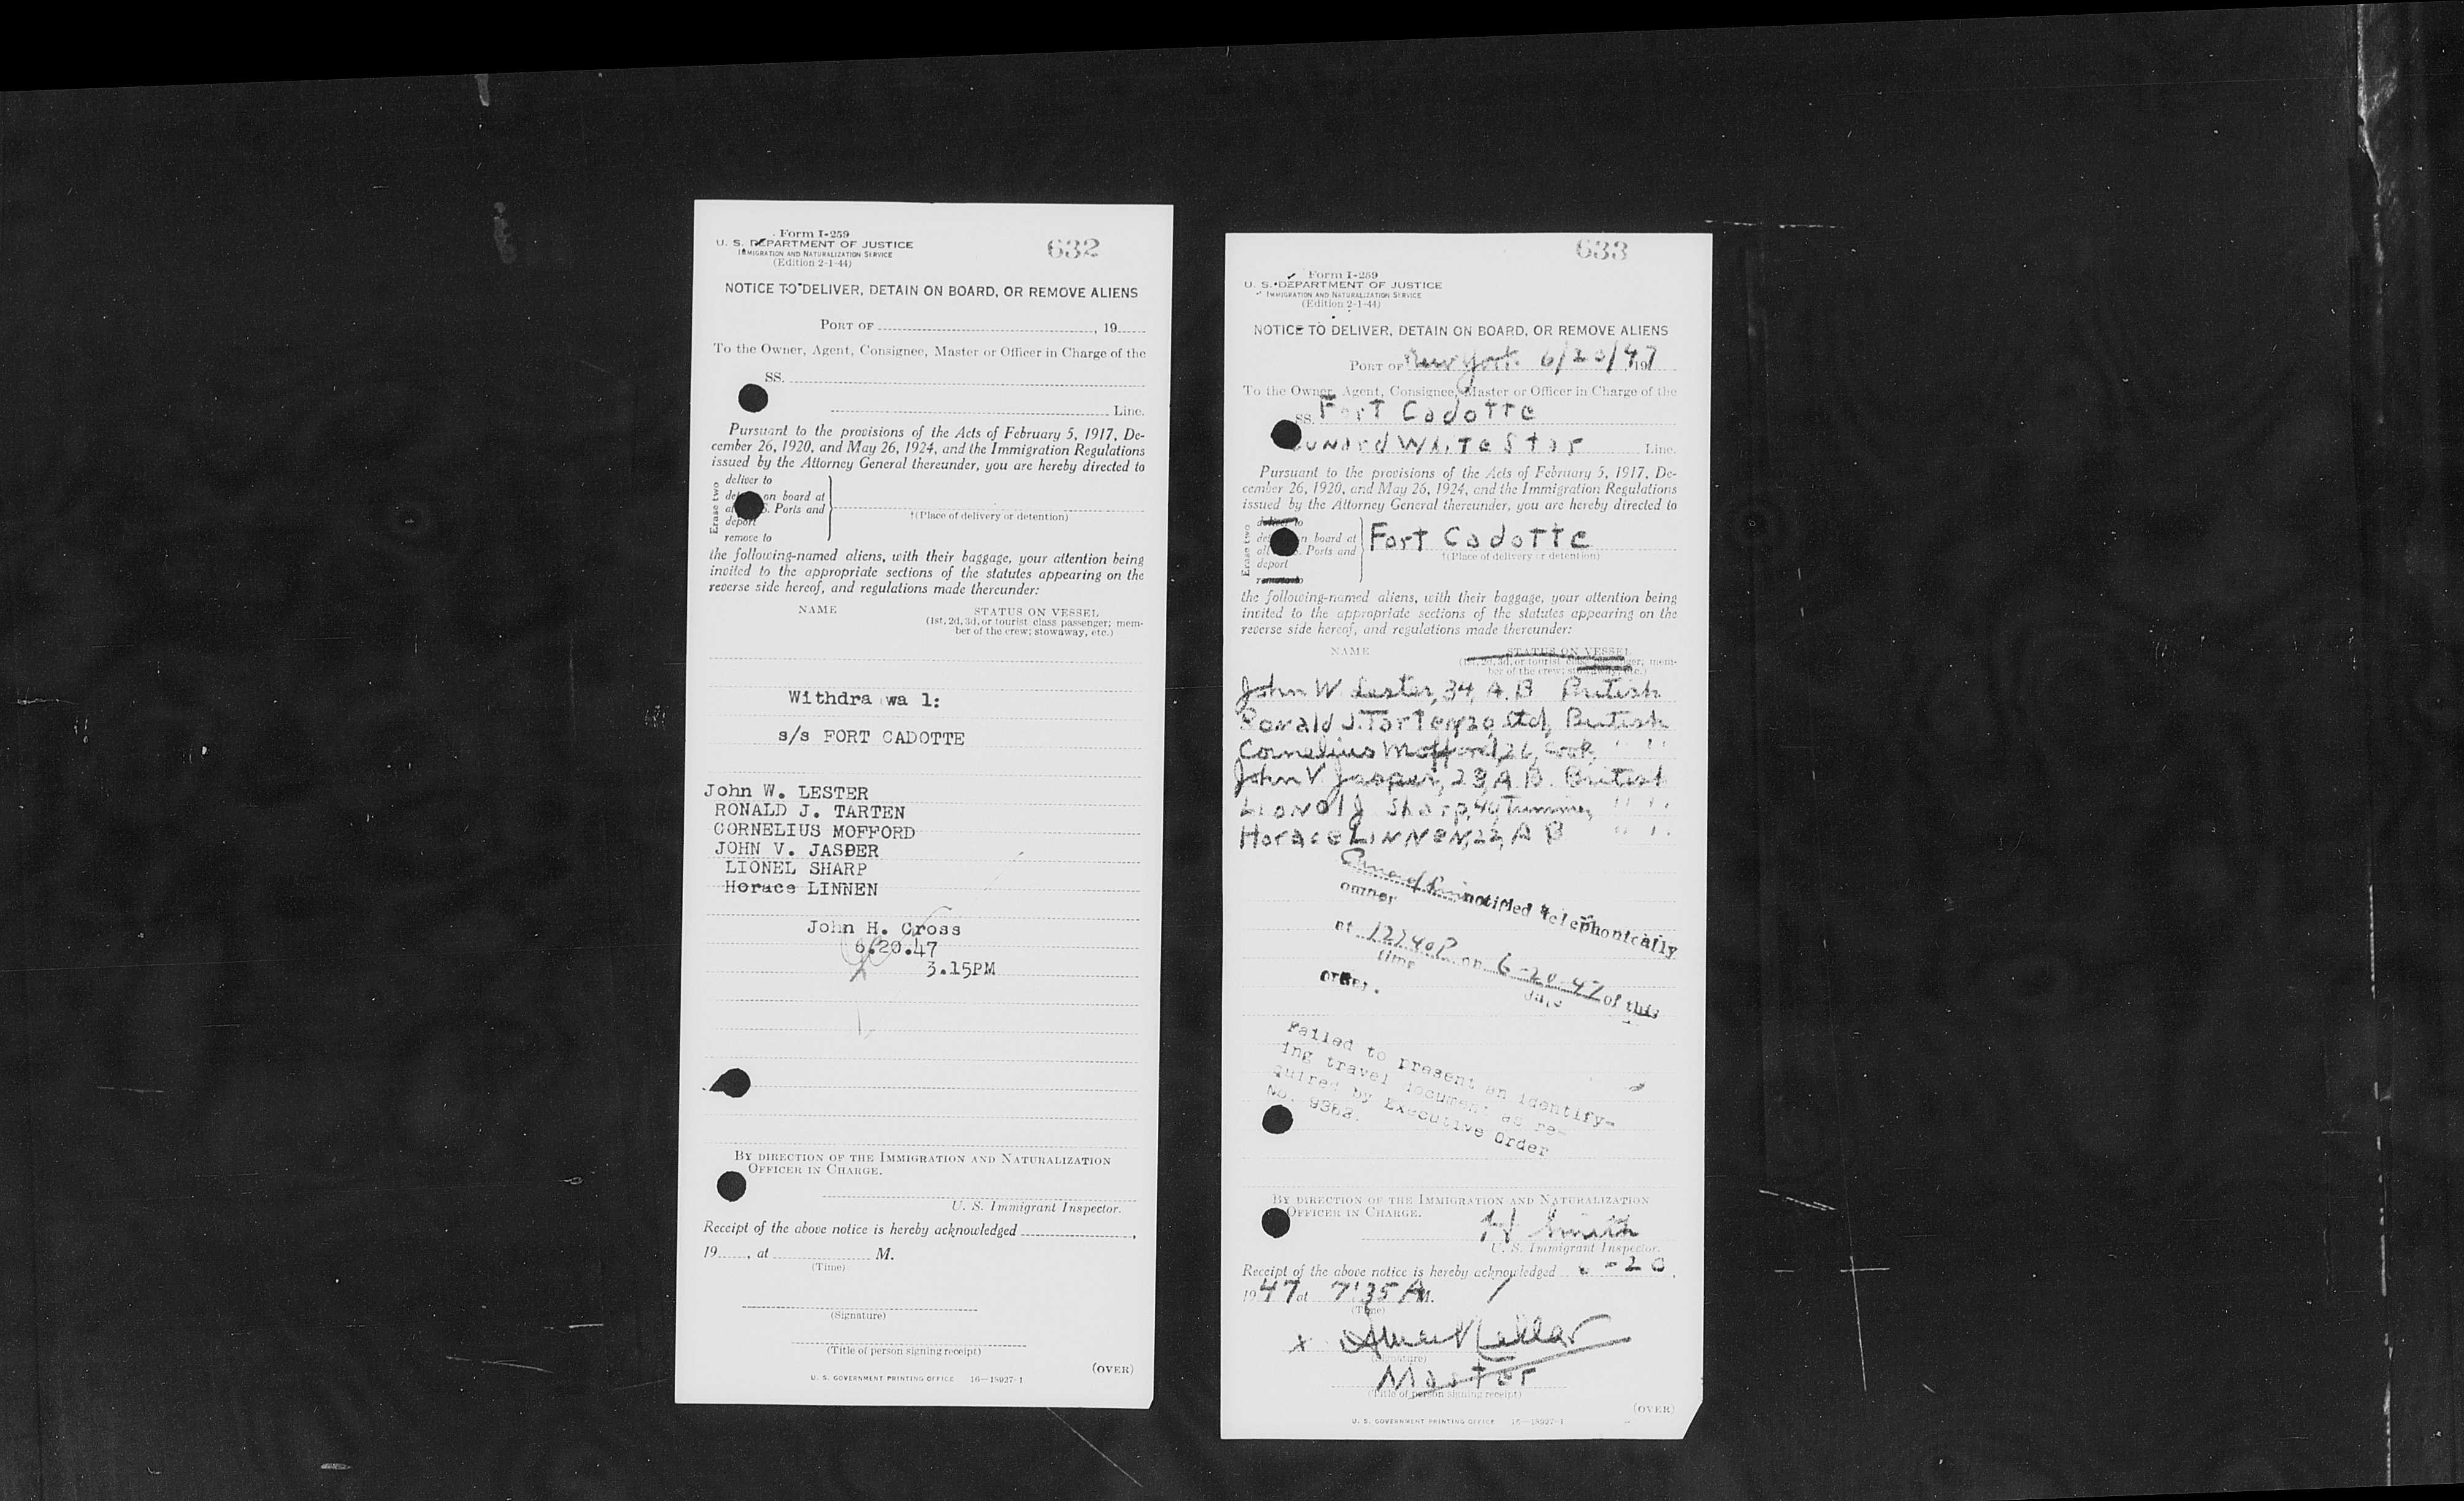 Form I-259
U. S. DEPARTMENT OF JUSTICE
IMMIGRATION AND NATURALIZATION SERVICE
(Edition 2-1-44)
632
NOTICE TO DELIVER, DETAIN ON BOARD, OR REMOVE ALIENS
PORT OF , 19
To the Owner, Agent, Consignee, Master or Officer in Charge of the
SS.
Line.
Pursuant to the provisions of the Acts of February 5, 1917, De-
cember 26, 1920, and May 26, 1924, and the Immigration Regulations
issued by the Attorney General thereunder, you are hereby directed to
Erase two
deliver to
on board at
Ports and
deport
†(Place of delivery or detention)
remove to
the following-named aliens, with their baggage, your attention being
invited to the appropriate sections of the statutes appearing on the
reverse side hereof, and regulations made thereunder:
NAME STATUS ON VESSEL
(1st, 2d, 3d, or tourist class passenger; mem-
ber of the crew; stowaway, etc.)
Withdra wa l:
s/s FORT CADOTTE
John W. LESTER
RONALD J. TARTEN
CORNELIUS MOFFORD
JOHN V. JASPER
LIONEL SHARP
Horace LINNEN
John H. Cross
6.20.47
3.15PM
BY DIRECTION OF THE IMMIGRATION AND NATURALIZATION
OFFICER IN CHARGE.
U. S. Immigrant Inspector.
Receipt of the above notice is hereby acknowledged ,
19 , at M.
(Time)
(Signature)
(Title of person signing receipt)
(OVER)
U. S. GOVERNMENT PRINTING OFFICE 16—18027-1
633
Form I-259
U. S. DEPARTMENT OF JUSTICE
IMMIGRATION AND NATURALIZATION SERVICE
(Edition 2-1-44)
NOTICE TO DELIVER, DETAIN ON BOARD, OR REMOVE ALIENS
PORT OF New York 6/20/47 19
To the Owner, Agent, Consignee, Master or Officer in Charge of the
SS. Fort Cadotte
unard White Star Line.
Pursuant to the provisions of the Acts of February 5, 1917, De-
cember 26, 1920, and May 26, 1924, and the Immigration Regulations
issued by the Attorney General thereunder, you are hereby directed to
Erase two
deliver to
on board at
Ports and
Fort Cadotte
†(Place of delivery or detention)
deport
remove to
the following-named aliens, with their baggage, your attention being
invited to the appropriate sections of the statutes appearing on the
reverse side hereof, and regulations made thereunder:
NAME STATUS ON VESSEL
(1st, 2d, 3d, or tourist class passenger; mem-
ber of the crew; stowaway, etc.)
John W Lester, 34, A.B British
Ronald J. Tarten, 20, Std, British
Cornelius Mofford, 26, Cook, " "
John V Jasper, 23, A B. British
Lionel J Sharp, 40, Trimmer, " "
Horace LINNEN, 22, A B " "
notified telephonically
owner
at 1240P on 6-20-47 of this
time date
order.
Failed to present an identify-
ing travel document as re-
quired by Executive Order
No. 9352.
BY DIRECTION OF THE IMMIGRATION AND NATURALIZATION
OFFICER IN CHARGE.
H Smith
U. S. Immigrant Inspector.
Receipt of the above notice is hereby acknowledged 6-20,
1947 at 7:35 A M.
(Time)
x
(Signature)
Master
(Title of person signing receipt)
(OVER)
U. S. GOVERNMENT PRINTING OFFICE 16—18027-1